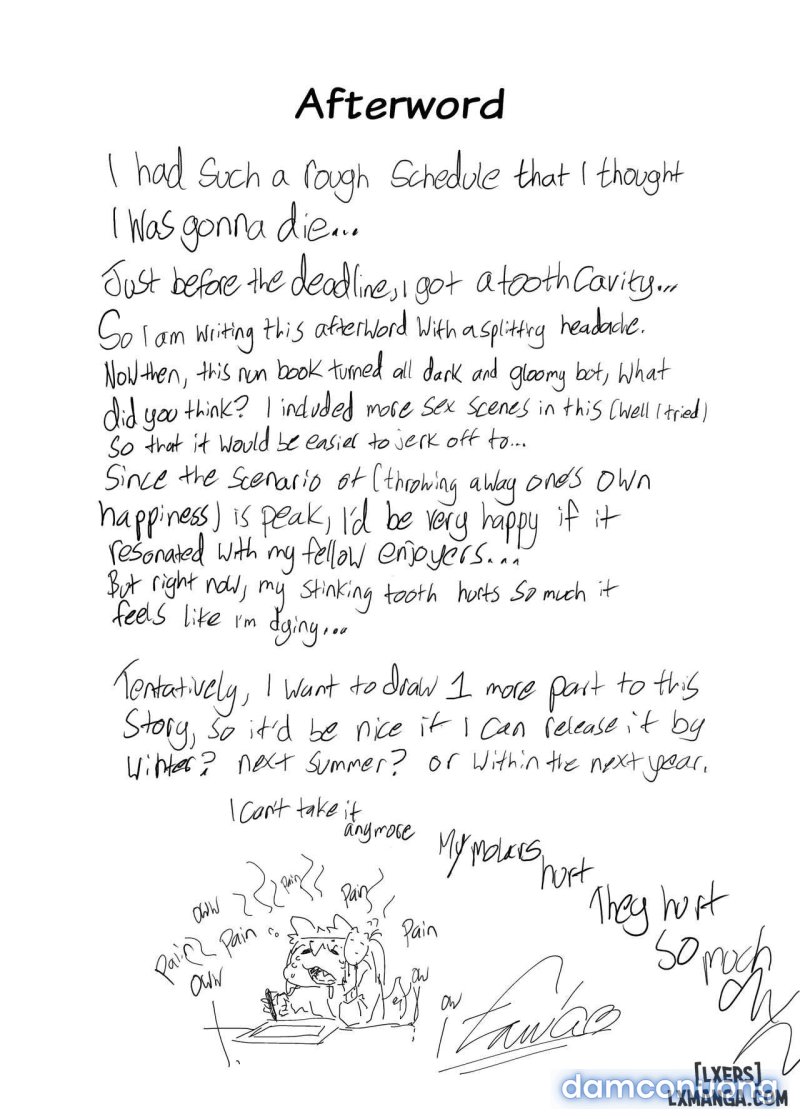 Afterword
I had such a rough schedule that I thought
I was gonna die...
Just before the deadline, I got a tooth cavity...
So I am writing this afterword with a splittry headache.
Now then, this nun book turned all dark and gloomy bot, what
did you think? I included more sex scenes in this (well I tried)
so that it would be easier to jerk off to...
Since the scenario of (throwing away one's own
happiness) is peak, I'd be very happy if it
resonated with my fellow enjoyers...
But right now, my stinking tooth hurts so much it
feels like I'm dying...
Tentatively, I want to draw 1 more part to this
story, so it'd be nice if I can release it by
winter? next summer? or within the next year.
I can't take it
anymore
My molars
hurt
They hurt
so much
ow
Pain
Pain
oww
Pain
Pain
Pain
oww
ow
ow
[LXERS]
LXMANGA.COM